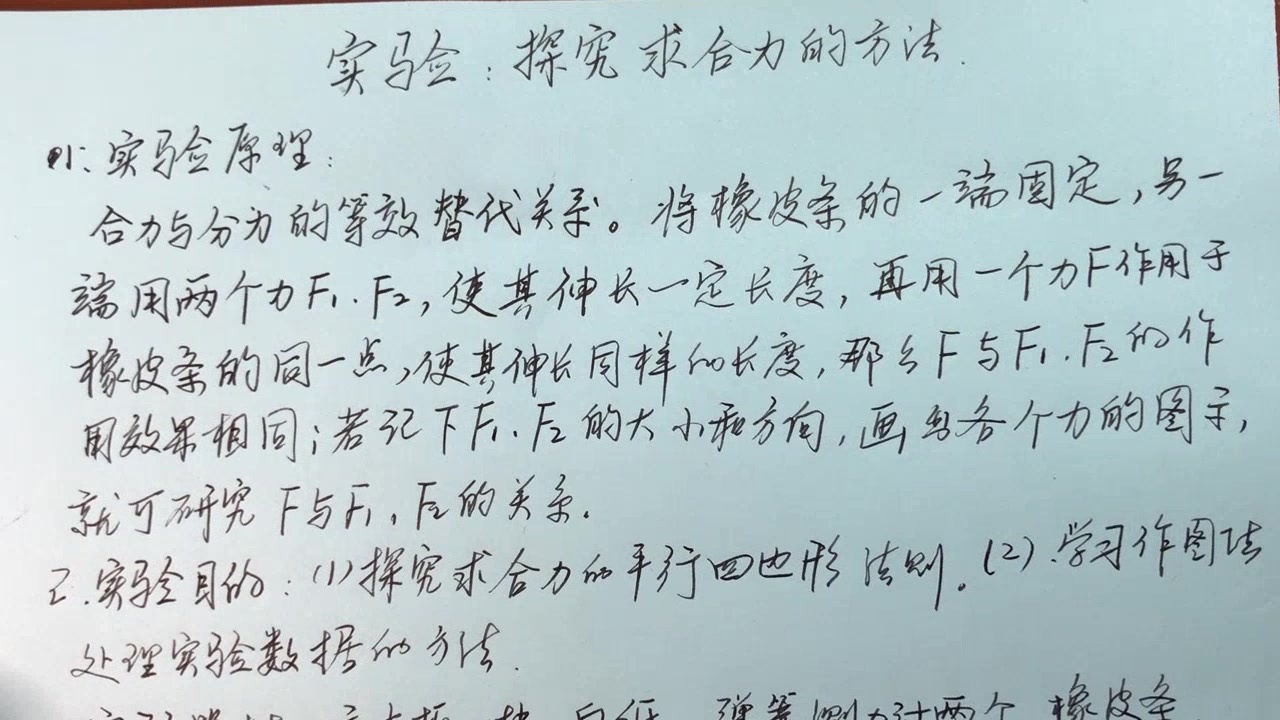 实验：探究求合力的方法.
1：实验原理：
合力与分力的等效替代关系。将橡皮条的一端固定，另一
端用两个力F₁.F₂，使其伸长一定长度，再用一个力F作用于
橡皮条的同一点，使其伸长同样的长度，那么F与F₁.F₂的作
用效果相同；若记下F₁.F₂的大小和方向，画出各个力的图示，
就可研究F与F₁，F₂的关系.
2.实验目的：(1)探究求合力的平行四边形法则。(2).学习作图法
处理实验数据的方法.
弹簧测力计两个 橡皮条